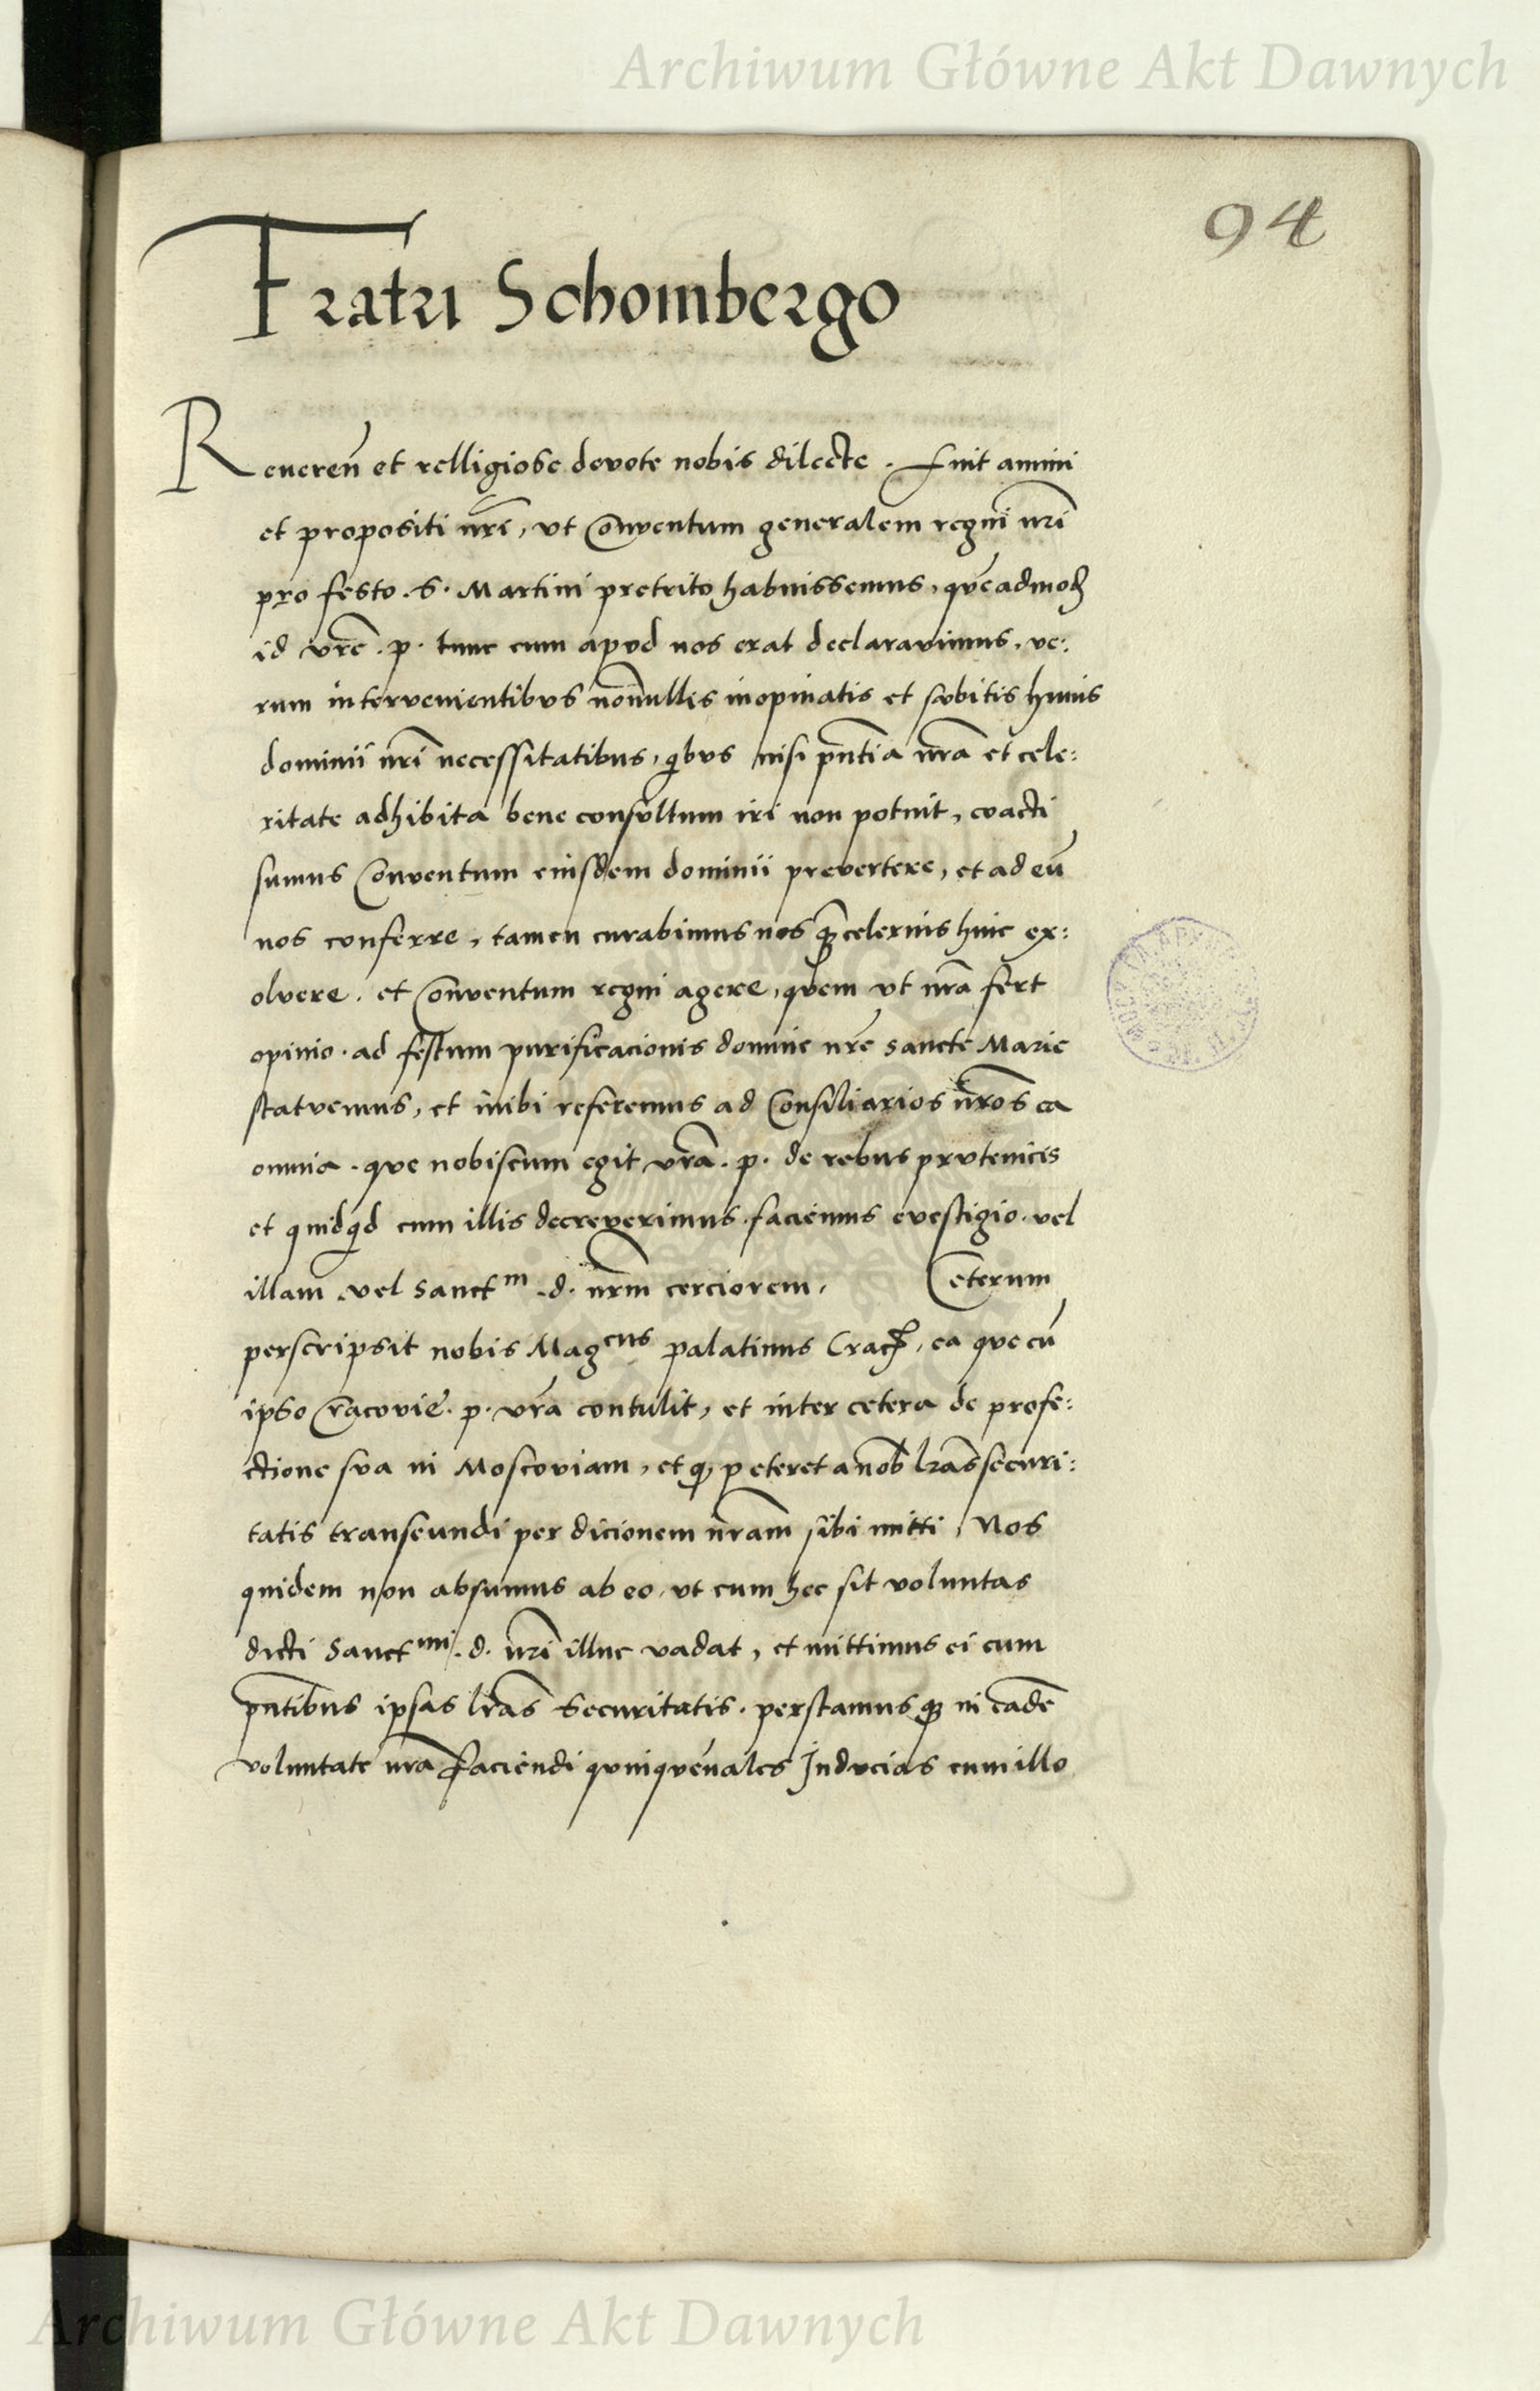 Archiwum Główne Akt Dawnych
94
Fratri Schombergo
Reveren̄ et relligiose devote nobis dilecte . Fuit animi
et propositi nr̄i, ut Conventum generalem regni nr̄i
pro festo . S . Martini pretrito habuissemus, quēadmodꝫ
id vr̄e . p . tunc cum apud nos erat declaravimus, ve:
rum intervenientibus nōnullis inopinatis et subitis huius
dominii nr̄i necessitatibus, qibus nisi pn̄tia nr̄a et cele:
ritate adhibita bene consultum iri non potuit, coacti
sumus Conventum eiusdem dominii prevertere, et ad eū
nos conferre, tamen curabimus nos qꝫ celerius hinc ex:
olvere . et Conventum regni agere, quem ut nr̄a fert
opinio . ad festum purificacionis domine nr̄e sancte Marie
statuemus, et inibi referemus ad Consiliarios nr̄os ea
omnia . que nobiscum egit vr̄a . p . de rebus prutenicis
et quidqid cum illis decreverimus . faciemus evestigio . vel
illam . vel Sanctm . d . nr̄m cerciorem . Ceterum
perscripsit nobis Magcus palatinus Crac̄, ea que cū
ipso Cracovie . p . vr̄a contulit, et inter cetera de profe:
ctione sua in Moscoviam, et qꝫ peteret a nob̄ lr̄as securi:
tatis transeundi per dicionem nr̄am sibi mitti, Nos
quidem non absumus ab eo, ut cum hec sit voluntas
dicti Sanctmi . d . nr̄i illuc vadat, et mittimus ei cum
pn̄tibus ipsas lr̄as Securitatis . perstamus qꝫ in eadē
voluntate nr̄a faciendi quinquēnales Inducias cum illo
Archiwum Główne Akt Dawnych